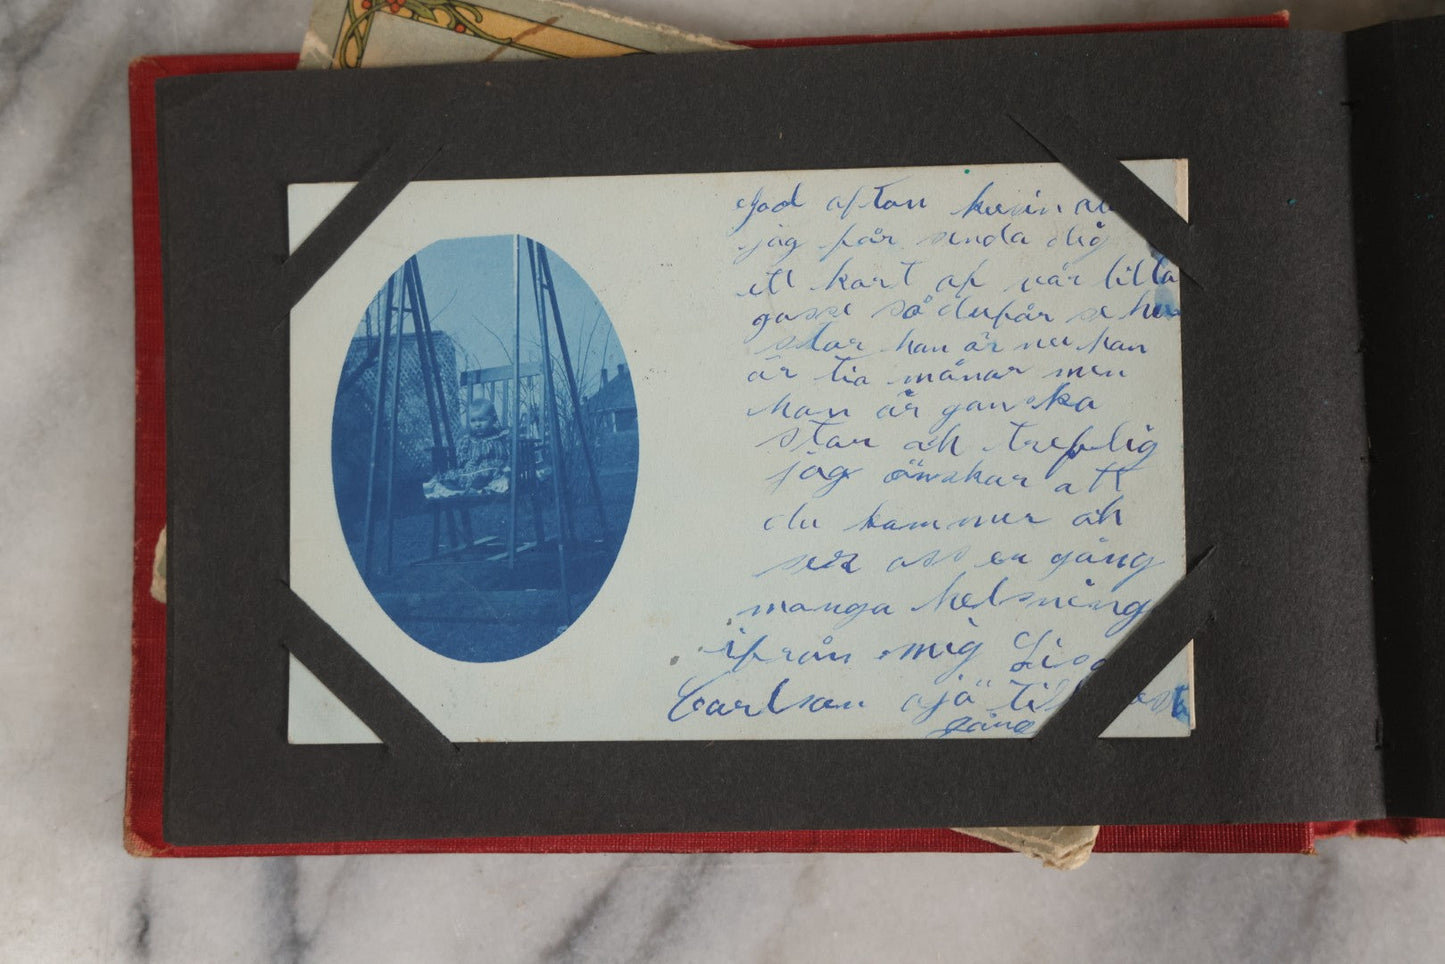 God aftan kusin
jag får senda dig
ett kort af vår lilla
gosse så du får se hur
stor han är nu han
är tia månar men
han är ganska
stor åh treflig
jag önskar att
du kammer åh
ser oss en gång
manga helsning
ifrån mig
Carlson ajö til
gång